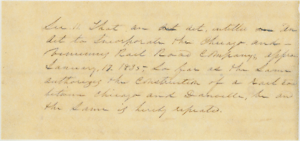 Sec 2. That an act, entitled an
Act to Incorporate the Chicago and
Rail Road Company, appro
January, 17, 1835, So far as the same
authorizes the Construction of a Rail Road
between Chicago and Danville, be and
the Same is hereby repealed.